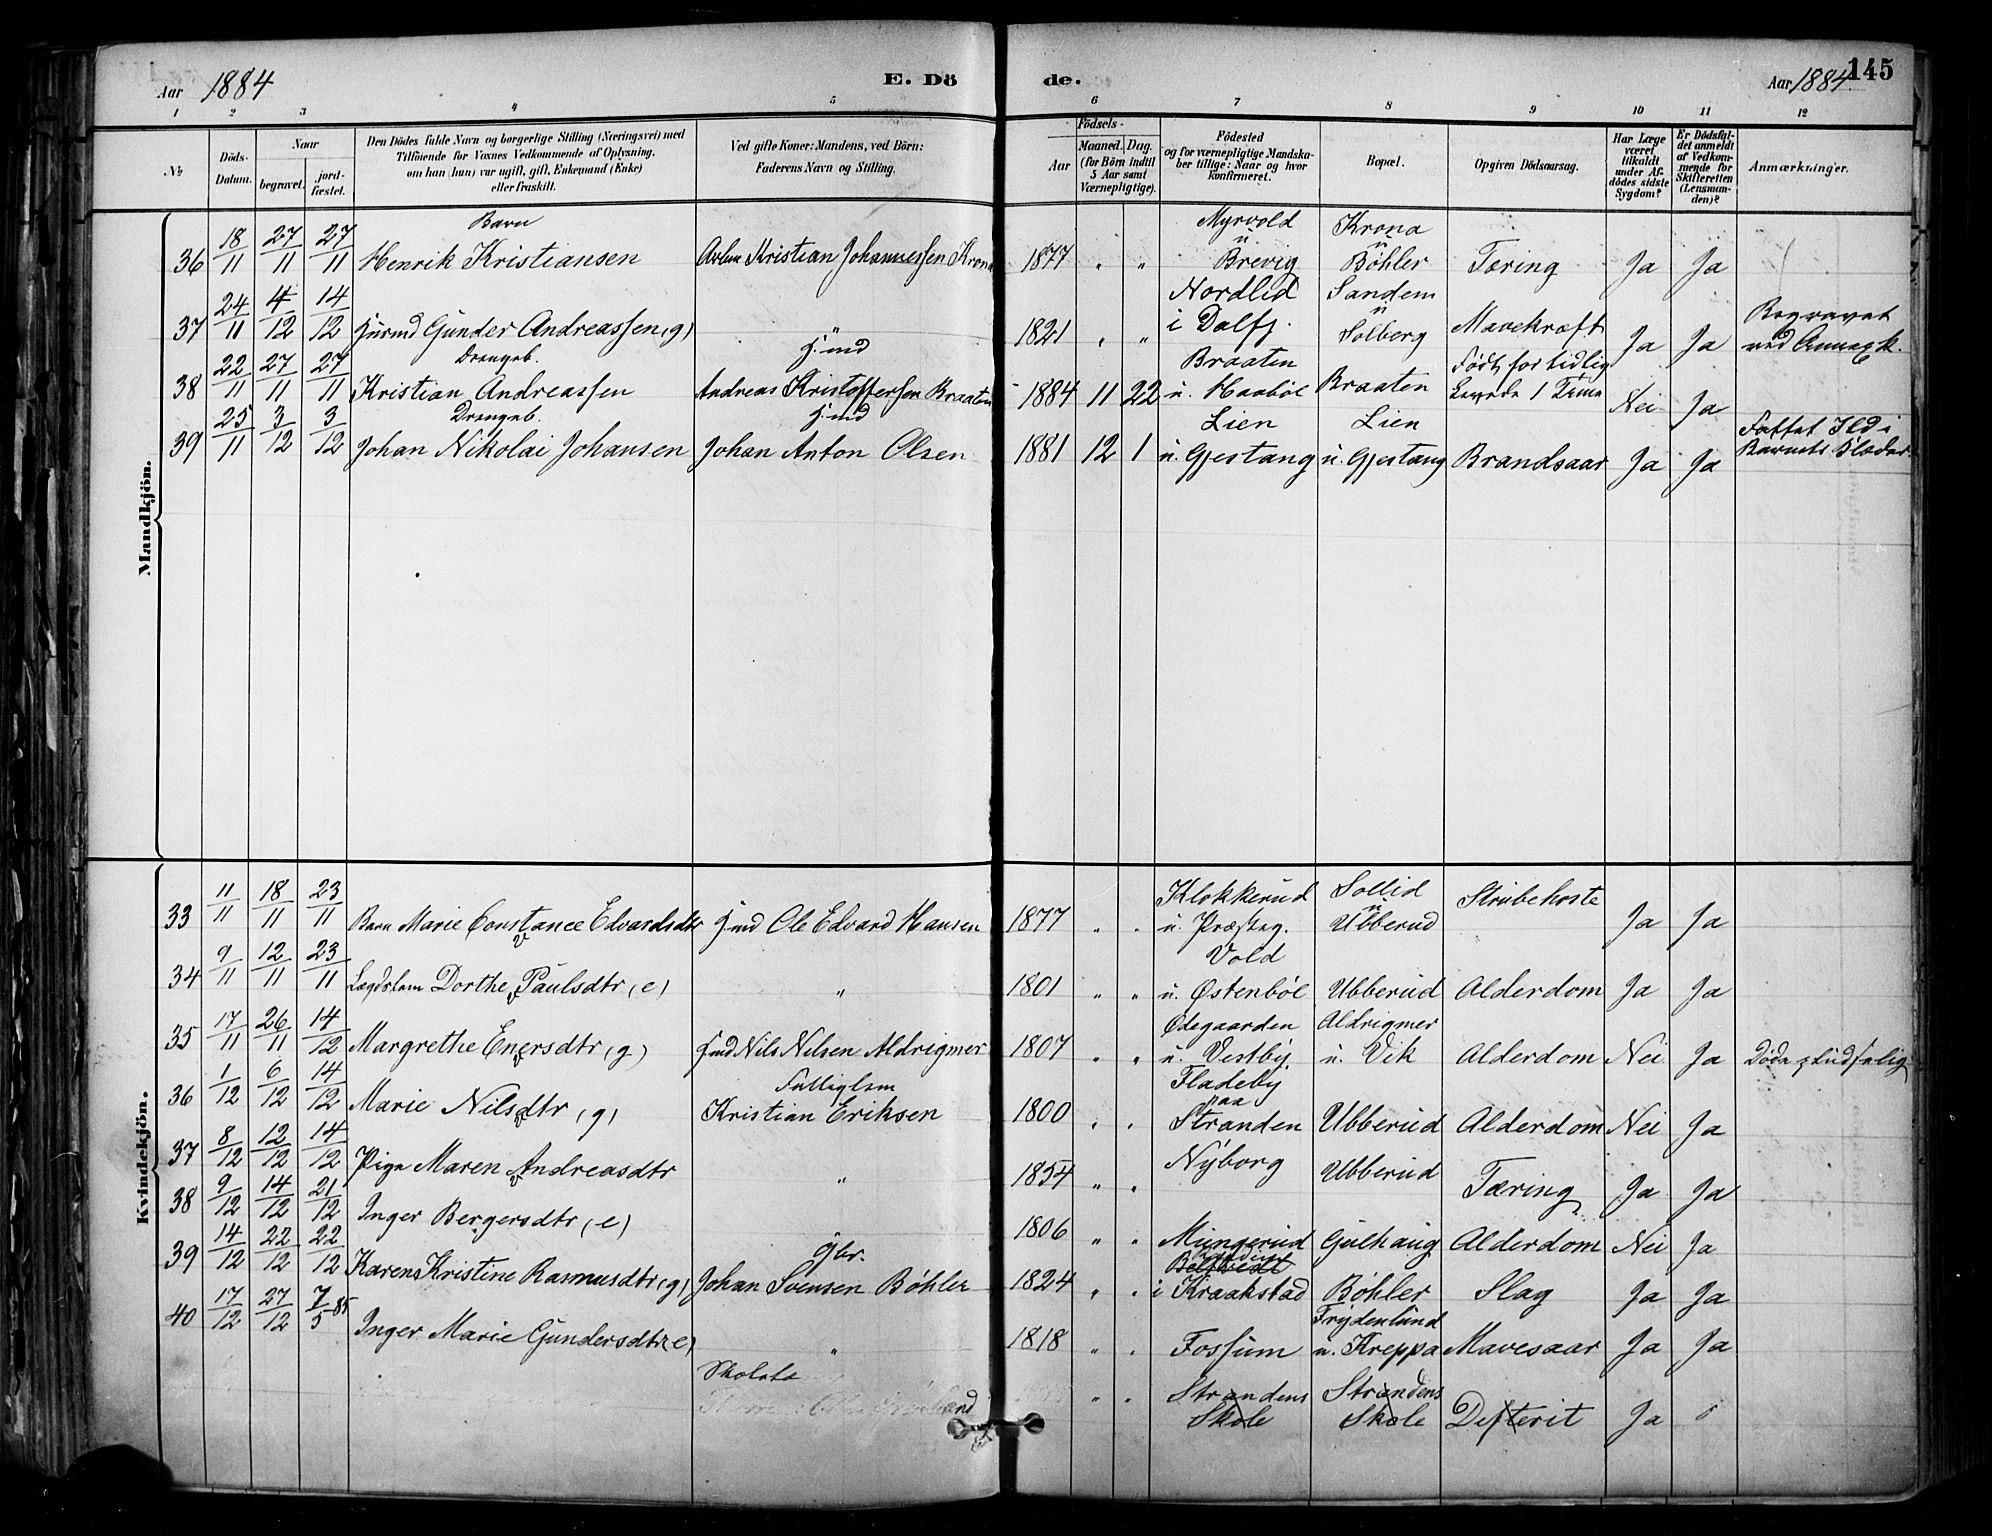 Aar 1884 E. Dö de. Aar 1884 145
1 2 3 4 5 6 7 8 9 10 11 12
No
Döds-Datum.
Naar
begravet.
jord-fæstet.
Den Dödes fulde Navn og borgerlige Stilling (Næringsvei) med
Tilföiende for Voxnes Vedkommende af Oplysning,
om han (hun) var ugift, gift, Enkemand (Enke)
eller fraskilt.
Ved gifte Koner: Mandens, ved Börn:
Faderens Navn og Stilling.
Födsels-
Aar
Maaned. Dag.
(for Börn indtil
5 Aar samt
Værnepligtige).
Födested
og for værnepligtige Mandska-
ber tillige: Naar og hvor
konfirmeret.
Bopæl.
Opgiven Dödsaarsag.
Har Læge
været
tilkaldt
under Af-
dödes sidste
Sygdom?
Er Dödsfal-
det anmeldt
af Vedkom-
mende for
Skifteretten
(Lensman-
den)?
Anmærkninger.
Mandkjön.
Barn Myrvold Krona
36 18/11 27/11 27/11 Henrik Kristiansen Kristian Johannessen Krona 1877 " " u Brevig u Böhler Tæring Ja Ja
Nordlid Sandem
37 24/11 4/12 14/12 Gunder Andreassen (g) " 1821 " " i Dalfj. u Solberg Mavekræft Ja Ja Begravet ved Annexk.
Drengeb. Hmd Braaten Født for tidlig
38 22/11 27/11 27/11 Kristian Andreassen Andreas Kristoffersen Braaten 1884 11 22 u. Haabøl Braaten Levede 1 Time Nei Ja
Drengeb. Hmd Lien Lien Fattet Ild i
39 25/11 3/12 3/12 Johan Nikolai Johansen Johan Anton Olsen 1881 12 1 u. Gjestang u. Gjestang Brandsaar Ja Ja Barnets Klæder.
Kvindekjön.
Klokkerud Sollid
33 11/11 18/11 23/11 Barn Marie Constance Edvardsdtr Hmd Ole Edvard Hansen 1877 " " u. Præsteg. u Ubberud Strubehoste Ja Ja
Vold
34 9/11 12/11 23/11 Lægdslem Dorthe Paulsdtr (e) " 1801 " " u. Østenbøl Ubberud Alderdom Ja Ja
Ødegaarden Aldrigmer
35 17/11 26/11 14/12 Margrethe Enersdtr (g) Hmd Nils Nilsen Aldrigmer 1807 " " u. Vestby u. Vik Alderdom Nei Ja Døde pludselig
Fattiglem Fladeby
36 1/12 6/12 14/12 Marie Nilsdtr (g) Kristian Eriksen 1800 " " paa Stranden Ubberud Alderdom Nei Ja
37 8/12 12/12 14/12 Pige Maren Andreasdtr " 1854 " " Nyborg Ubberud Tæring Ja Ja
38 9/12 14/12 21/12 Inger Bergersdtr (e) 1806 " " Mungerud Gulhaug Alderdom Nei Ja
Gbr.
39 14/12 22/12 22/12 Karen Kristine Rasmusdtr (g) Johan Svensen Böhler 1824 " " i Kraakstad Böhler Slag Ja Ja
Frydenlund
40 17/12 27/12 7/5 85 Inger Marie Gundersdtr (e) " 1818 " " Fossum u. Kreppa Mavesaar Ja Ja
Skolela
" " Strandens Skole Strandens Skole Defterit Ja